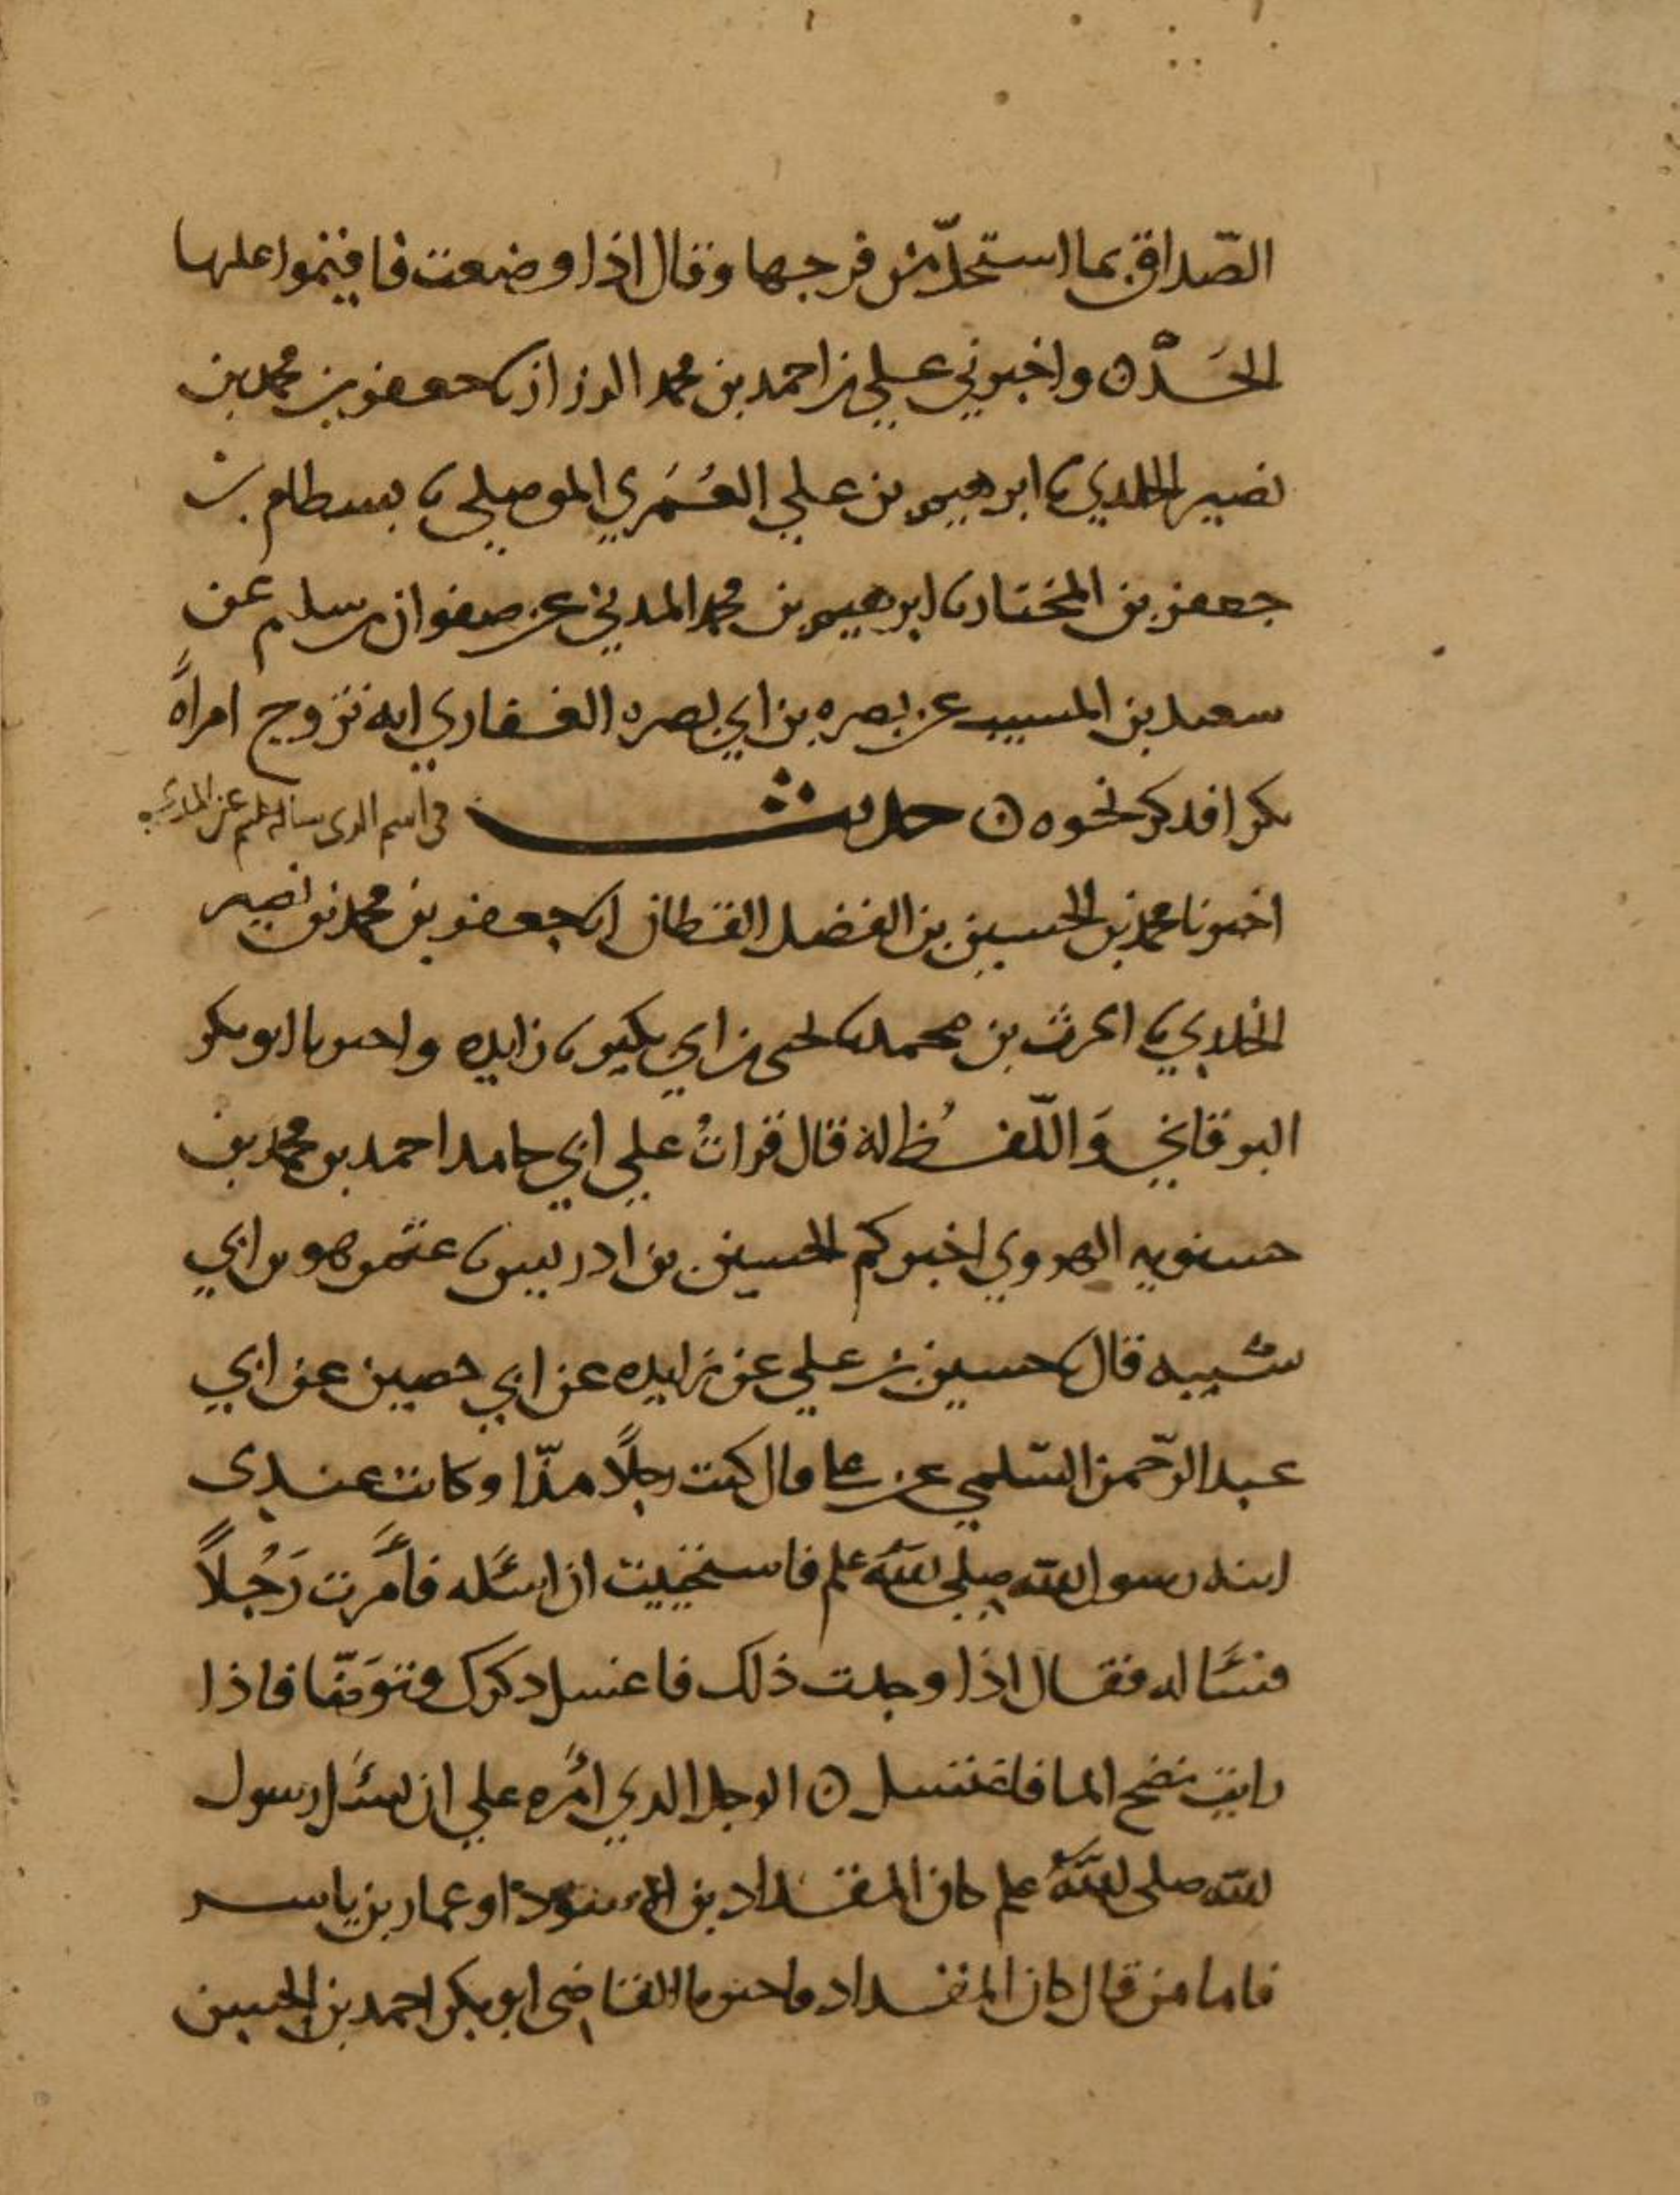 الصّداق بما استحلّ من فرجها وقال اذا وضعت فاقيموا عليها
الحَدّ ۞ واخبرني علي بن احمد بن محمد الرزاز نا جعفر بن محمد بن
نصير الخلدي نا ابرهيم بن علي العُمَري الموصلي نا بسطام بن
جعفر بن المختار نا ابرهيم بن محمد المدني عن صفوان بن سليم عن
سعيد بن المسيب عن بصره بن ابي بصره الغفاري انه تزوج امراةً
بكرا فذكر نحوه ۞ حديث في اسم الذي سال علم عن المذي
اخبرنا محمد بن الحسين بن الفضل القطان انا جعفر بن محمد بن نصير
الخلدي نا الحرث بن محمد نا يحيى بن ابي بكير نا زايده واخبرنا ابو بكر
البرقاني وَاللّفظُ له قال قراتُ علي ابي حامد احمد بن محمد بن
حسنويه الهروي اخبركم الحسين بن ادريس نا عثمن هو بن ابي
شيبه قال نا حسين بن علي عن زايده عن ابي حصين عن ابي
عبد الرّحمن السّلمي عن علي قال كنت رجلًا مذّا وكانت عندى
ابنه رسول الله صلي الله علم فاستحييت ان اسئَله فأمَرت رَجُلاً
فسَئاله فقال اذا وجدت ذلك فاغسل ذكرك وتوَضّا فاذا
رايت نضح الما فاغتسل ۞ الرجل الذي امَره علي ان يسئَل رسول
الله صلى الله علم كان المقداد بن الاسود او عمار بن ياسر
فاما من قال كان المقداد فاخبرنا القاضي ابو بكر احمد بن الحسين